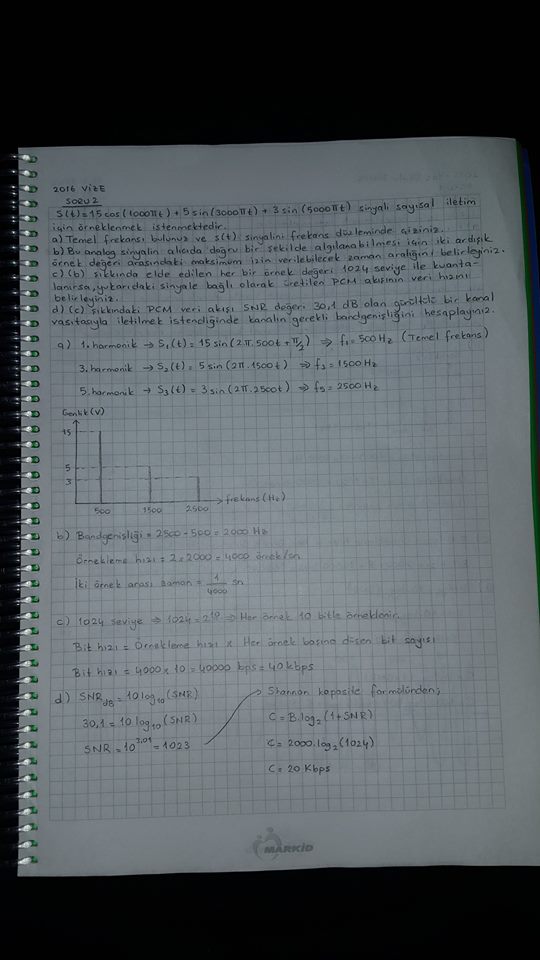 2016 VİZE
SORU 2
S(t)=15cos(1000πt)+5sin(3000πt)+3sin(5000πt) sinyali sayısal iletim
için örneklenmek istenmektedir.
a) Temel frekansı bulunuz ve s(t) sinyalini frekans düzleminde çiziniz.
b) Bu analog sinyalin alıcıda doğru bir şekilde algılanabilmesi için iki ardışık
örnek değeri arasındaki maksimum izin verilebilecek zaman aralığını belirleyiniz.
c) (b) şıkkında elde edilen her bir örnek değeri 1024 seviye ile kuanta-
lanırsa, yukarıdaki sinyale bağlı olarak üretilen PCM akışının veri hızını
belirleyiniz.
d) (c) şıkkındaki PCM veri akışı SNR değeri 30,1 dB olan gürültülü bir kanal
vasıtasıyla iletilmek istendiğinde kanalın gerekli bandgenişliğini hesaplayınız.
a) 1. harmonik → S₁(t) = 15 sin(2π.500t + π/2) ⇒ f₁ = 500 Hz (Temel frekans)
3. harmonik → S₂(t) = 5 sin(2π.1500t) ⇒ f₃ = 1500 Hz
5. harmonik → S₃(t) = 3 sin(2π.2500t) ⇒ f₅ = 2500 Hz
Genlik (V)
15
5
3
500 1500 2500 frekans (Hz)
b) Bandgenişliği = 2500 - 500 = 2000 Hz
Örnekleme hızı = 2 x 2000 = 4000 örnek/sn
İki örnek arası zaman = 1/4000 sn
c) 1024 seviye ⇒ 1024 = 2¹⁰ ⇒ Her örnek 10 bitle örneklenir.
Bit hızı = Örnekleme hızı x Her örnek başına düşen bit sayısı
Bit hızı = 4000 x 10 = 40000 bps = 40 kbps
d) SNR dB = 10 log₁₀ (SNR)
30,1 = 10 log₁₀ (SNR)
SNR = 10^3,01 = 1023
Shannon kapasite formülünden;
C = B.log₂(1+SNR)
C = 2000.log₂(1024)
C = 20 Kbps
MARKİD